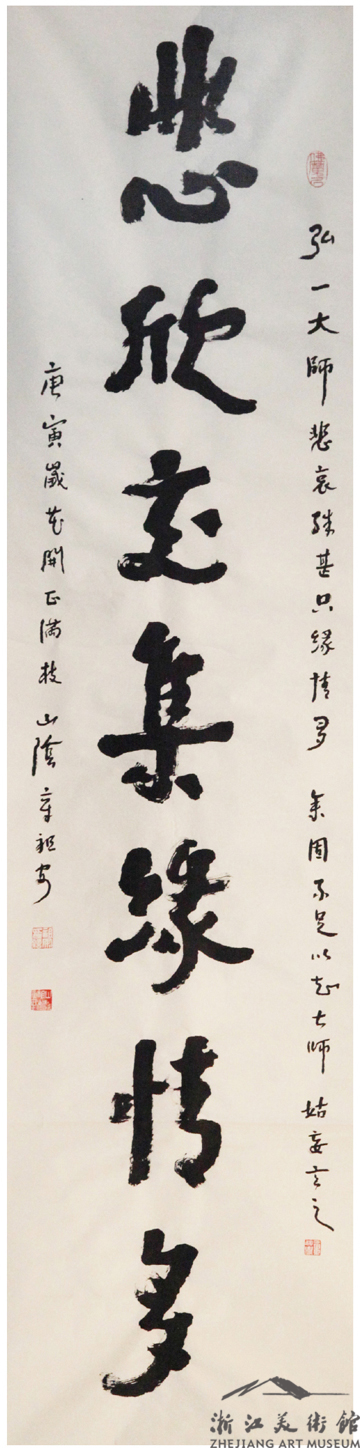 弘一大師悲哀殊甚只緣情多 余固不足以知大師 姑妄言之
悲欣交集緣情多
庚寅歲花開正滿枝 山陰章祖安
浙江美術館
ZHEJIANG ART MUSEUM